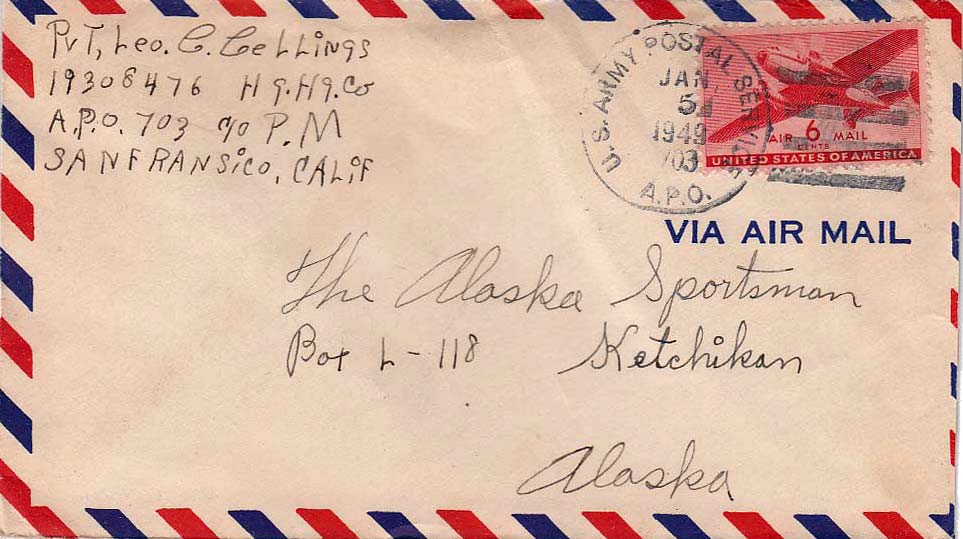 PvT, Leo. C. CeLLiNgs
19308476 Hq.Hq.Co
A.P.O. 703 c/o P.M
SANFRANSiCO, CALiF
U.S. ARMY POSTAL SERVICE
JAN
5
1949
703
A.P.O.
AIR 6 MAIL
CENTS
UNITED STATES OF AMERICA
VIA AIR MAIL
The Alaska Sportsman
Box L-118 Ketchikan
Alaska